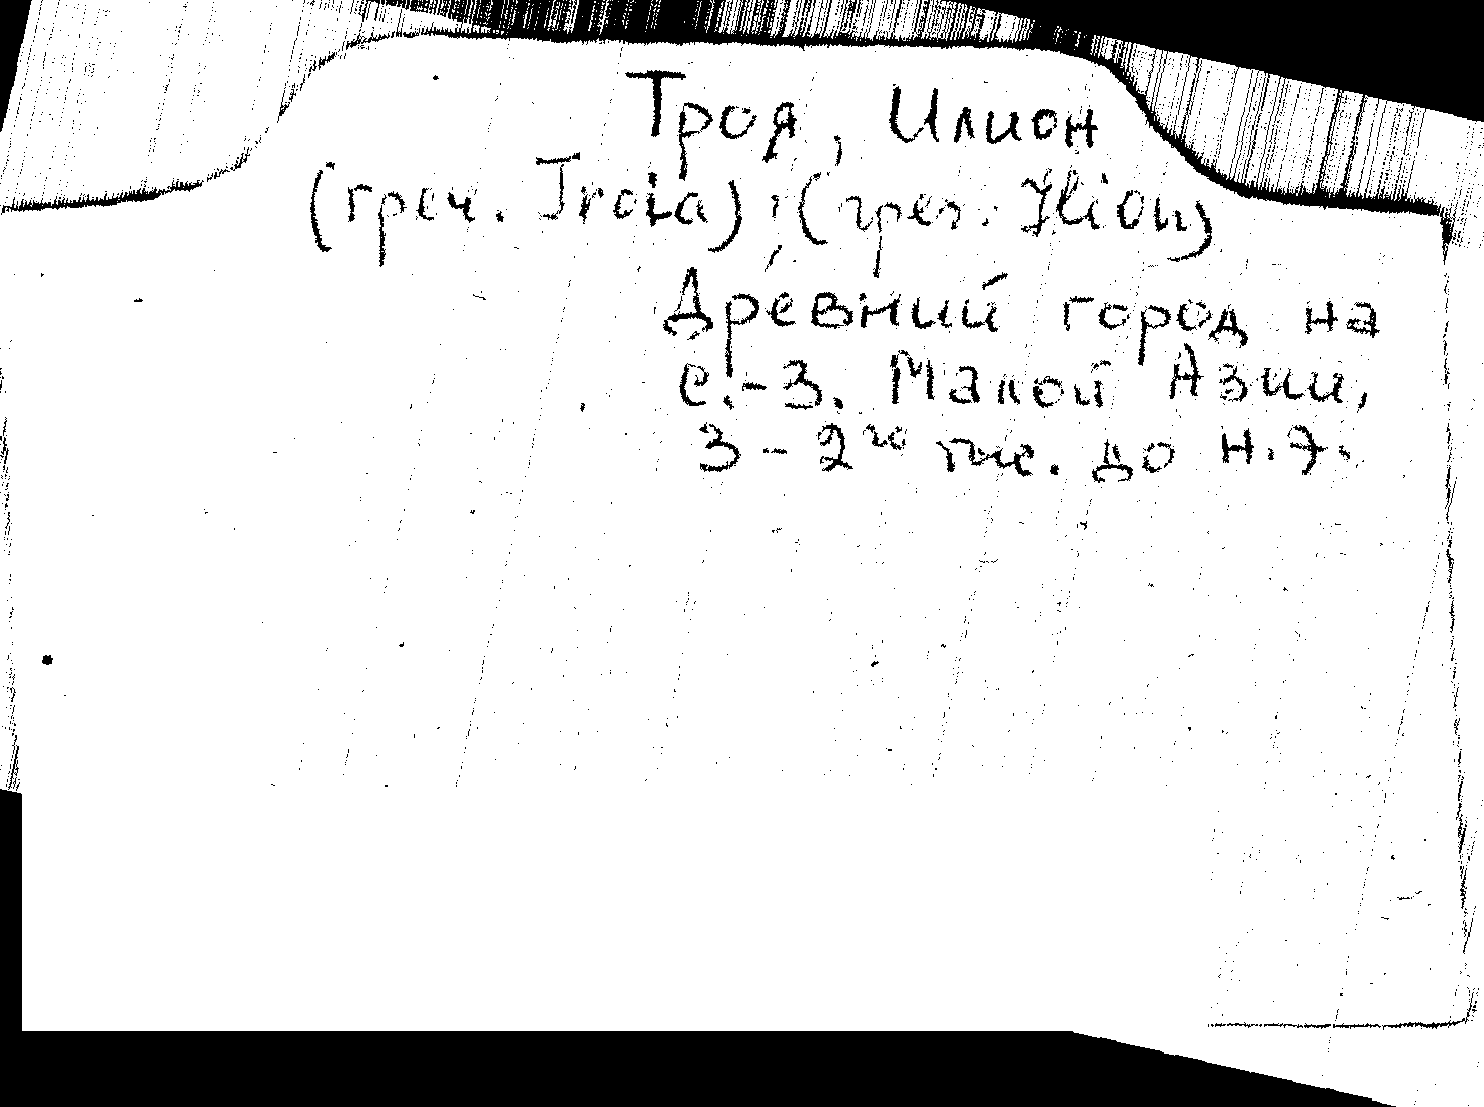 Троя, Илион
(греч. Troia); (греч. Ilion)
Древний город на
с.-З. Малой Азии,
3 - 2го тыс. до н.э.